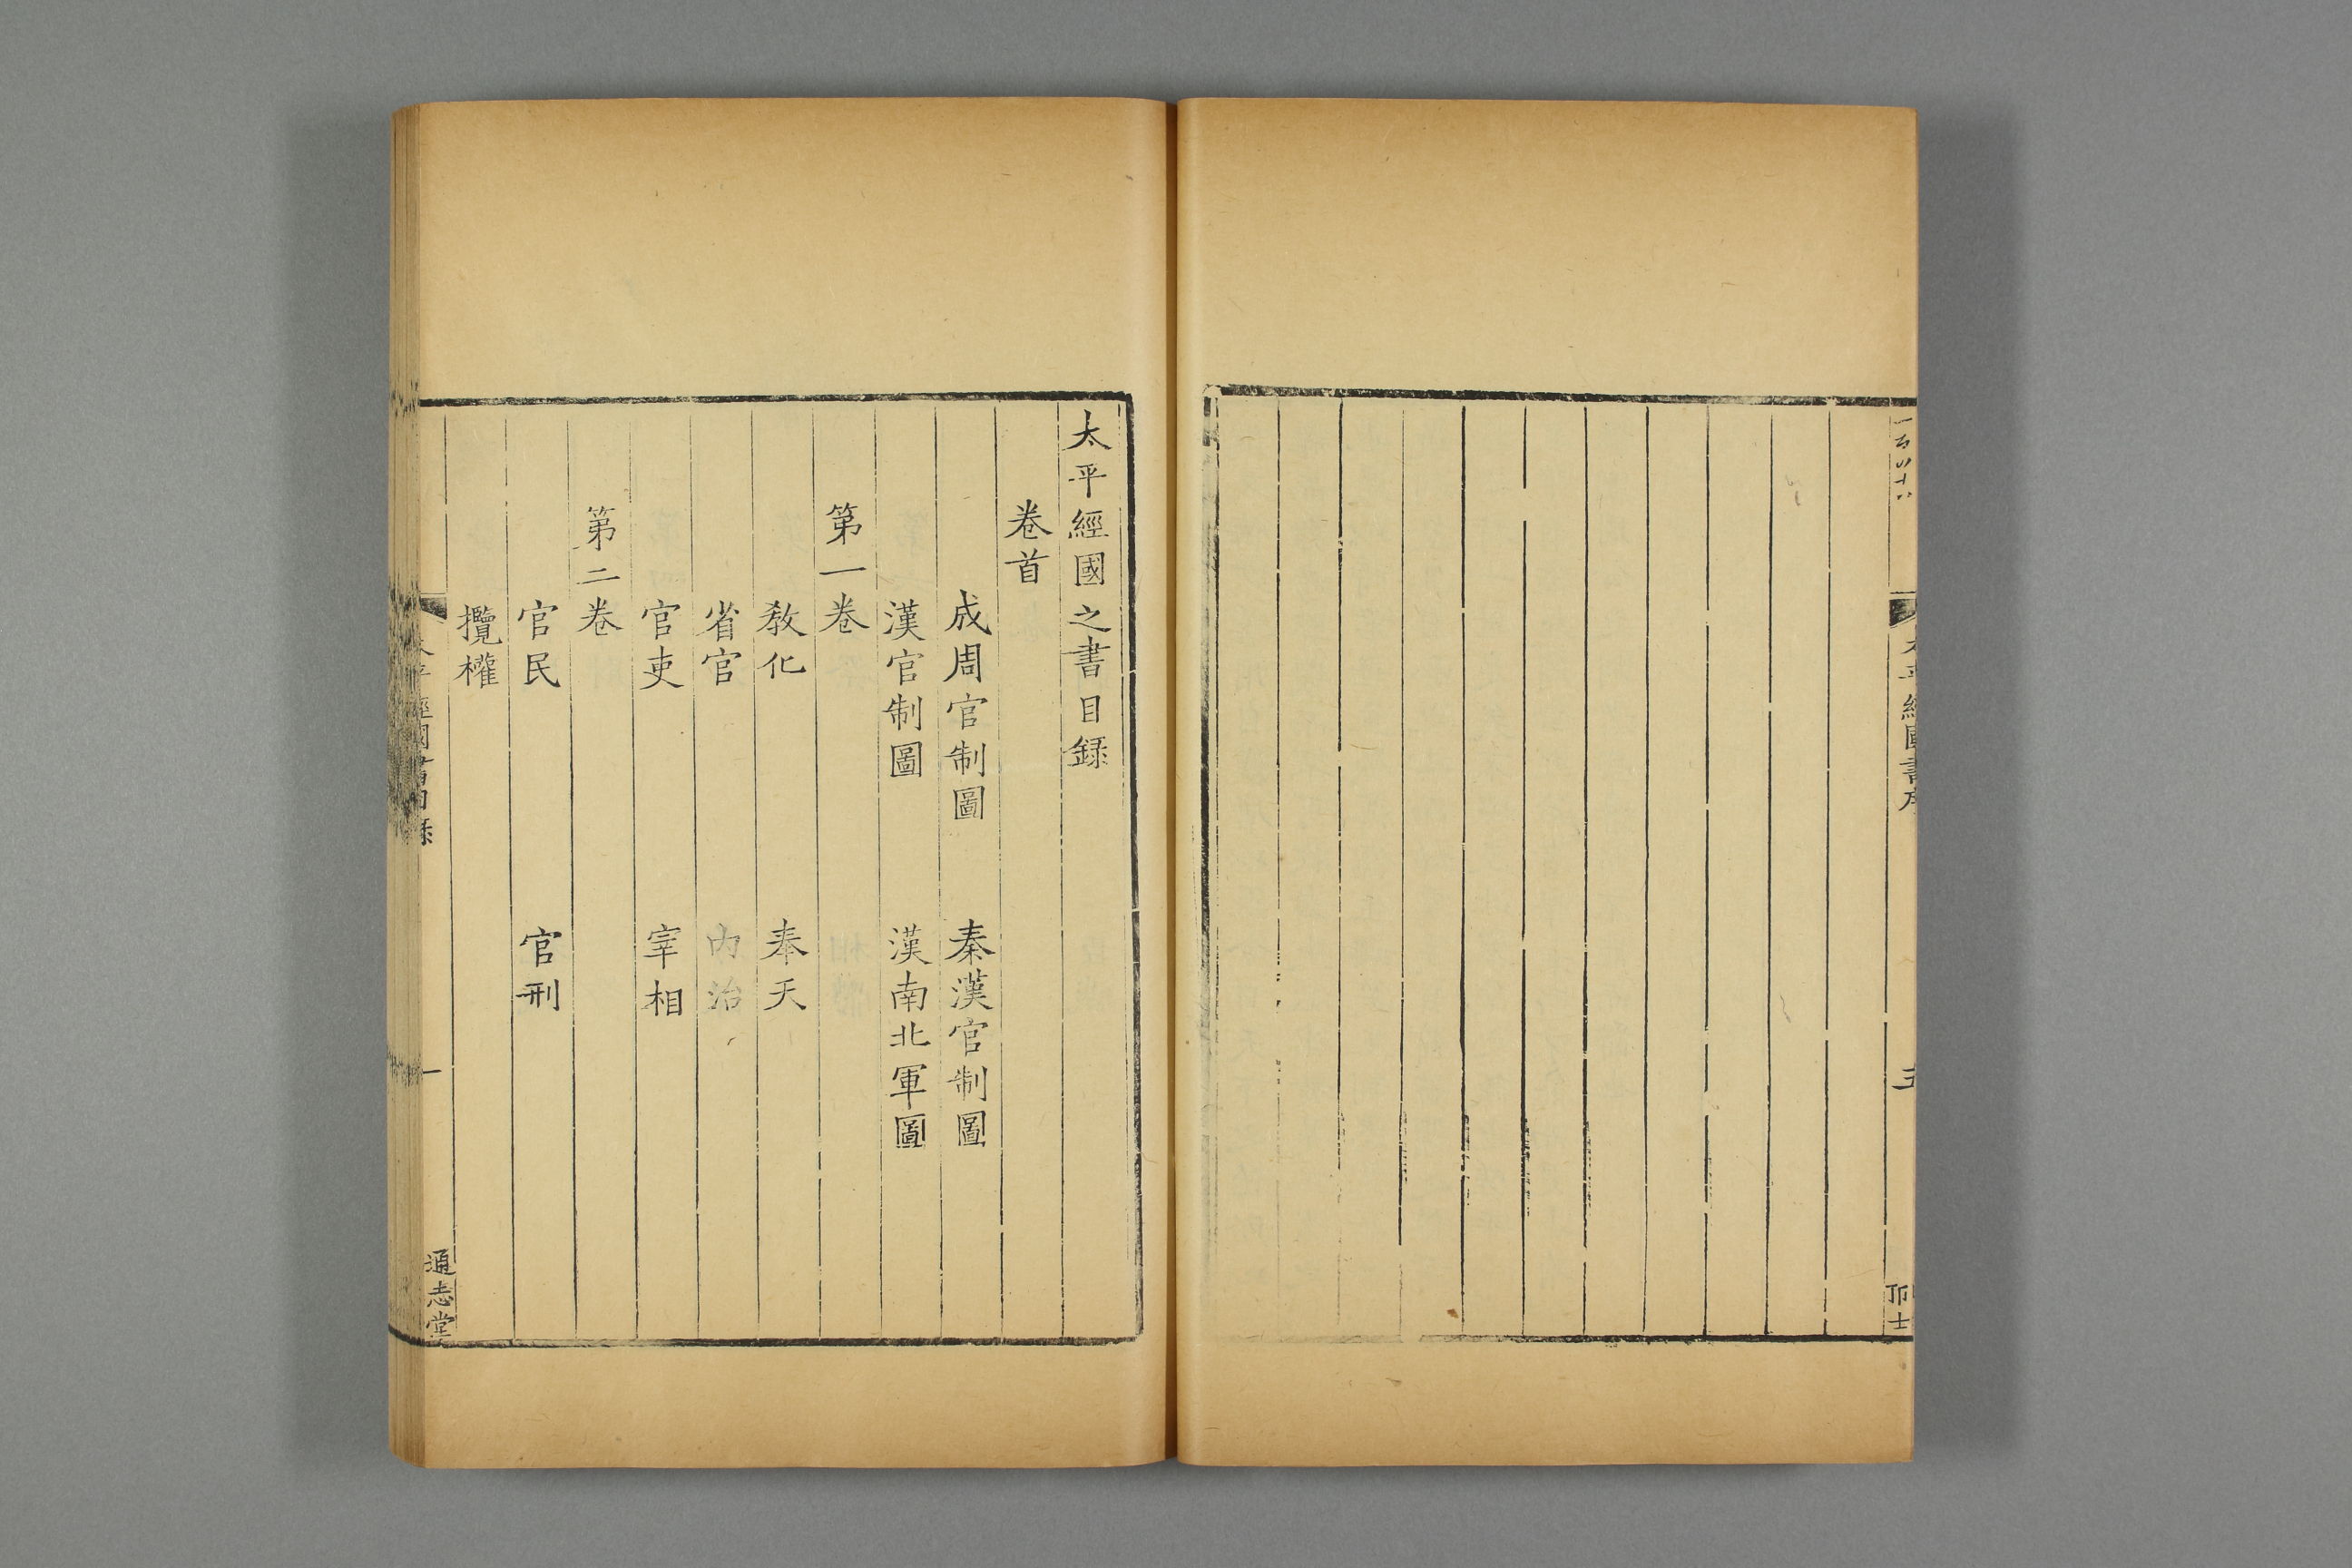 太平經國書序
五
太平經國之書目録
卷首
成周官制圖　秦漢官制圖
漢官制圖　漢南北軍圖
第一卷
教化　奉天
省官　内治
官吏　宰相
第二卷
官民　官刑
攬權
太平經國書目録
一
通志堂